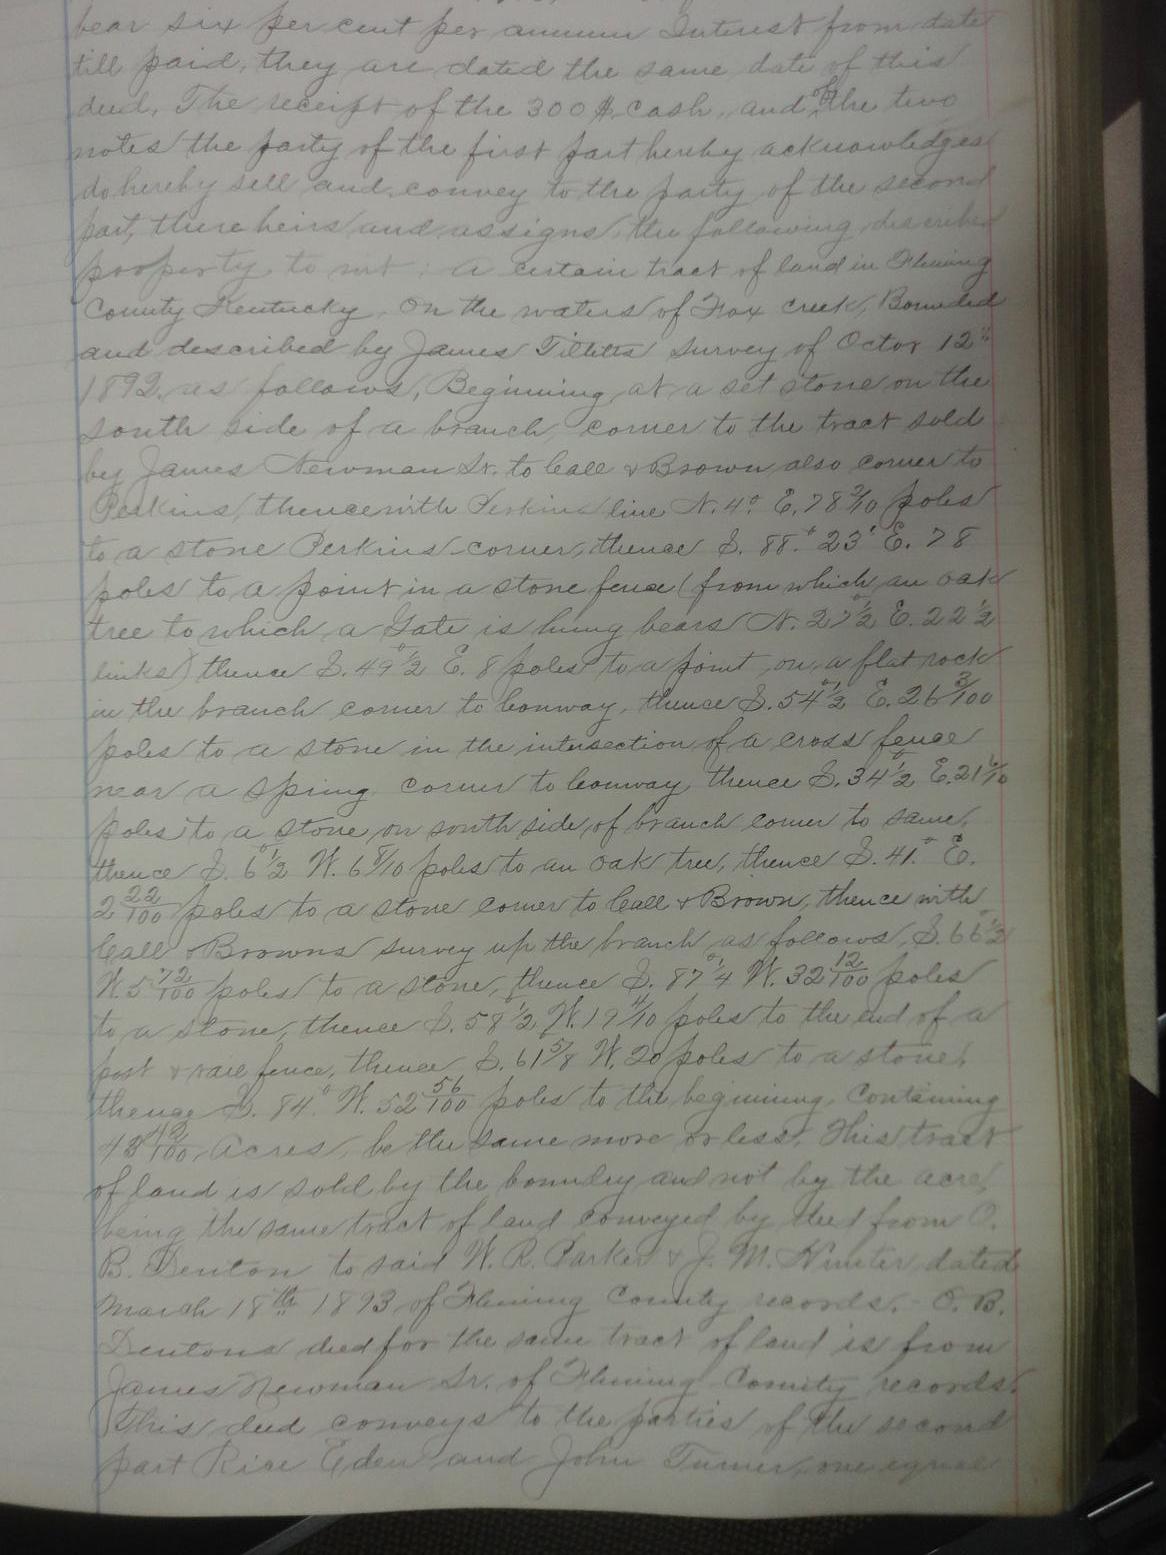 bear six per cent per annum Interest from date
till paid, they are dated the same date of this
deed. The receipt of the 300 $ cash, and of the two
notes the party of the first part hereby acknowledges
do hereby sell and convey to the party of the second
part, there heirs and assigns, the following described
property to wit: a certain tract of land in Fleming
County Kentucky, On the waters of Fox creek, Bounded
and described by James Tilletts survey of Octor 12th
1892, as follows, Beginning at a set stone on the
south side of a branch, corner to the tract sold
by James Newman Sr. to Call & Brown also corner to
Perkins, thence with Perkins line N. 4° E. 78 2/10 poles
to a stone Perkins corner, thence S. 88.° 23' E. 78
poles to a point in a stone fence (from which an oak
tree to which a Gate is hung bears N. 27°1/2 E. 22 1/2
links) thence S. 49°1/2 E. 8 poles to a point on a flat rock
in the branch corner to Conway, thence S. 54°1/2 E. 26 3/100
poles to a stone in the intersection of a cross fence
near a spring corner to Conway, thence S. 34°1/2 E. 21 6/10
poles to a stone on south side of branch corner to same,
thence S. 6°1/2 W. 6 8/10 poles to an oak tree, thence S. 41.° E.
2 22/100 poles to a stone corner to Call & Brown, thence with
Call & Browns survey up the branch as follows, S. 66°1/2
W. 5 72/100 poles to a stone, thence S. 87°1/4 W. 32 12/100 poles
to a stone, thence S. 58 1/2 W. 19 4/10 poles to the end of a
post & rail fence, thence S. 61 5/8 W. 20 poles to a stone,
thence S. 84.° W. 52 56/100 poles to the beginning, Containing
43 /100 Acres, be the same more or less. This tract
of land is sold by the boundry and not by the acre,
being the same tract of land conveyed by deed from O.
B. Denton to said W. R. Parker & J. M. Hunter dated
March 18th 1893 of Fleming County records. O. B.
Dentons deed for the same tract of land is from
James Newman Sr. of Fleming County records.
This deed conveys to the parties of the second
part Rice Eden and John Turner, one equal